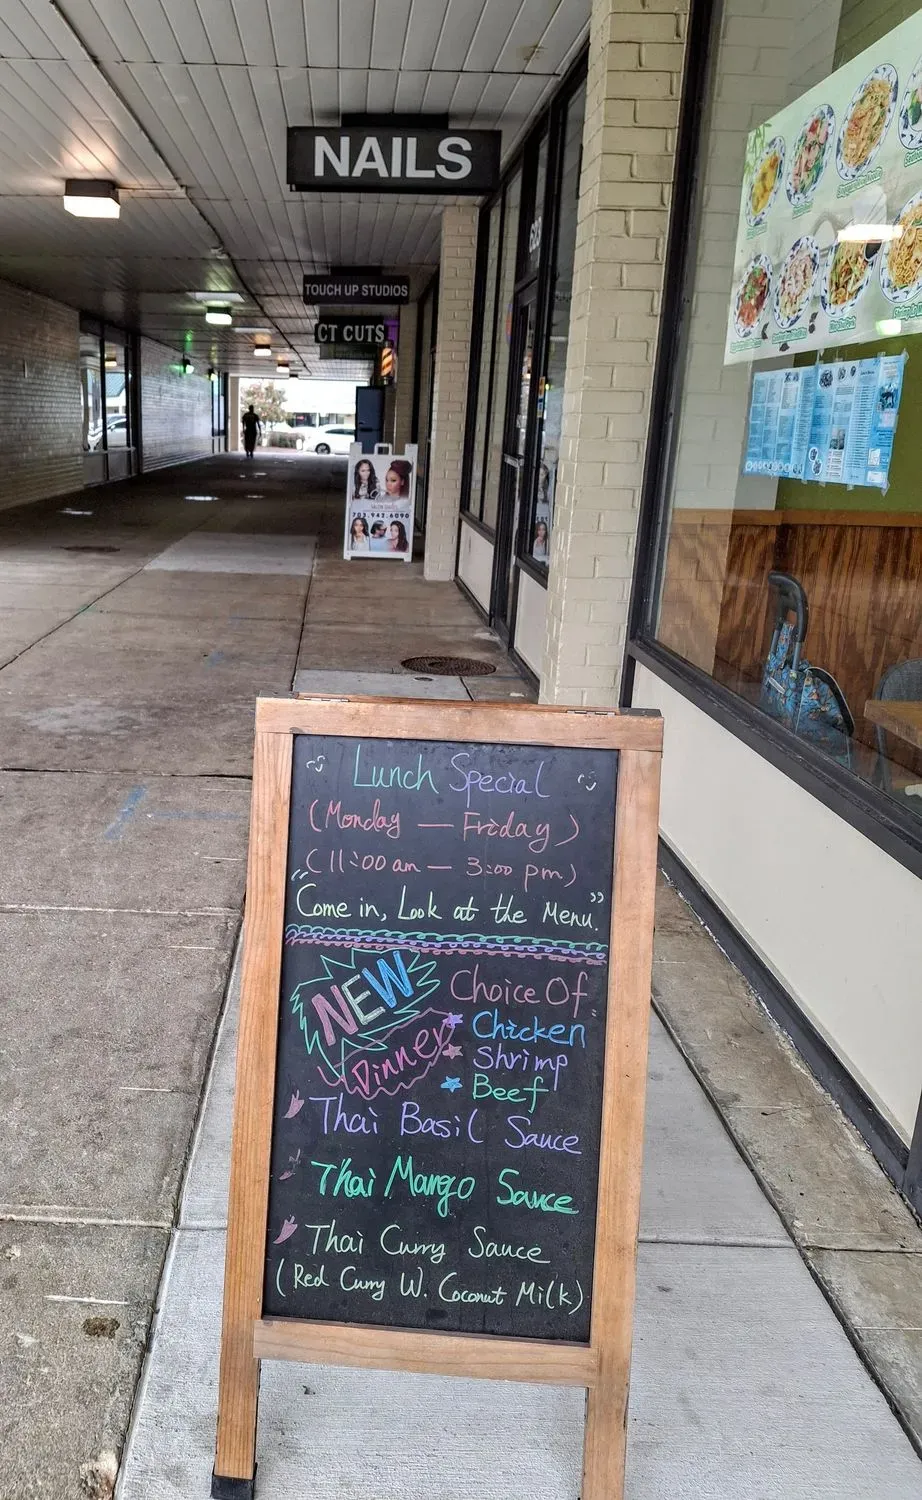 NAILS
TOUCH UP STUDIOS
CT CUTS
703.942.6090
Lunch Special
(Monday — Friday)
(11:00 am — 3:00 pm)
"Come in, Look at the Menu."
NEW
Dinner
Choice Of
Chicken
Shrimp
Beef
Thai Basil Sauce
Thai Mango Sauce
Thai Curry Sauce
(Red Curry W. Coconut Milk)